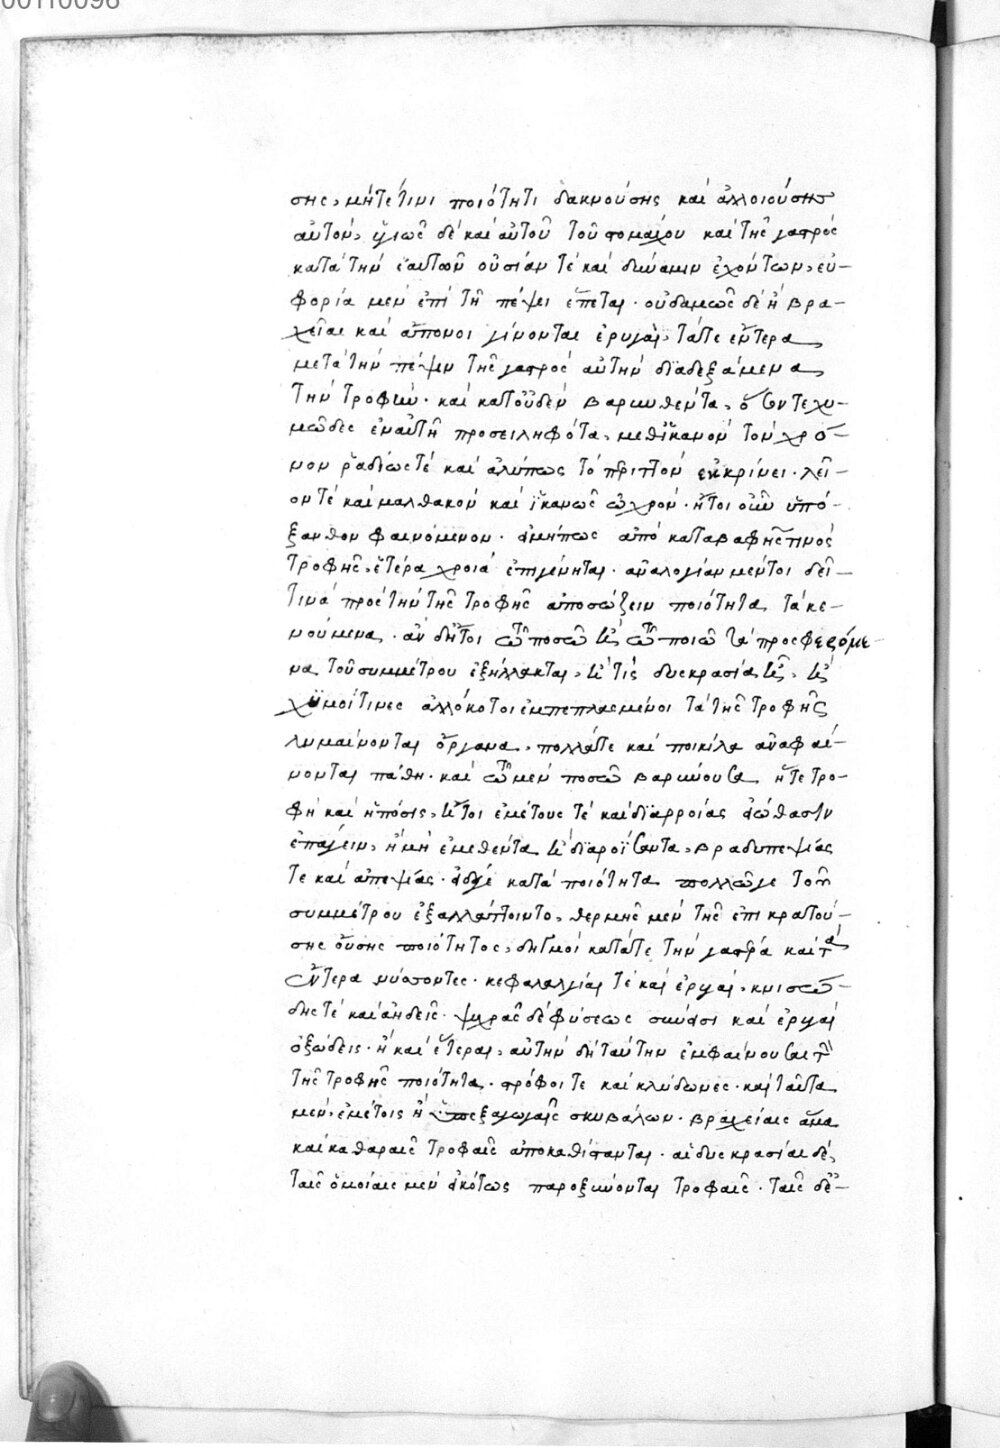 00110096
σης, μήτέ τινι ποιότητι δακνούσης καὶ ἀλλοιούσης
αὐτόν, ὑγιῶς δὲ καὶ αὐτοῦ τοῦ στομάχου καὶ τῆς γαστρός
κατὰ τὴν ἑαυτῶν οὐσίαν τὲ καὶ δύναμιν ἐχόντων, εὐ-
φορία μὲν ἐπὶ τῇ πέψει ἕπεται· οὐδαμῶς δὲ ἢ βρα-
χεῖαι καὶ ἄπονοι γίνονται ἐρυγαί, τάτε ἔντερα,
μετὰ τὴν πέψιν τῆς γαστρός αὐτὴν διαδεξάμενα,
τὴν τροφὴν· καὶ κατ' οὐδὲν βαρυνθέντα, ὅσον τε χυ-
μῶδες ἐν αὐτῇ προσειληφότα, μεθ' ἱκανὸν τὸν χρό-
νον ῥαδίως τὲ καὶ ἀλύπως τὸ περιττὸν ἐκκρίνει· λεῖ-
ον τὲ καὶ μαλθακὸν καὶ ἱκανῶς ὠχρόν· ἤτοι οὖν ὑπό-
ξανθον φαινόμενον· εἰ μήπως ἀπὸ καταβαφῆς τινός
τροφῆς, ἑτέρα χροιὰ ἐπιγένηται· ἀναλογίαν μέντοι δεῖ-
τινὰ πρὸς τὴν τῆς τροφῆς ἀποσώζειν ποιότητα τὰ κε-
νούμενα· ἂν δ' ἤτοι ἐν τῷ ποσῷ ἢ ἐν τῷ ποιῷ τὰ προσφερόμε-
να τοῦ συμμέτρου ἐξήλλακται, ἢ τίς δυσκρασία ἢ, ἢ
χυμοί τινες ἀλλόκοτοι ἐμπεπλασμένοι τὰ τῆς τροφῆς
λυμαίνονται ὄργανα, πολλά τε καὶ ποικίλα ἀναφαί-
νονται πάθη· καὶ ἐν τῷ μὲν ποσῷ βαρύνουσα ἥ τε τρο-
φὴ καὶ ἡ πόσις, ἤτοι ἐμέτους τὲ καὶ διαρροίας εἰώθασιν
ἐπάγειν, ἢ μὴ ἐμεθέντα ἢ διαροΐσαντα, βραδυπεψίας
τε καὶ ἀπεψίας· εἰ δέ γε κατὰ ποιότητα πολλῷ γε τοῦ
συμμέτρου ἐξαλλάττοιντο, θερμῆς μὲν τῆς ἐπικρατού-
σης οὔσης ποιότητος, δηγμοὶ κατά τε τὴν γαστέρα καὶ τὰ
ἔντερα νύσσοντες· κεφαλαλγίαι τὲ καὶ ἐρυγαί, κνισώ-
δης τὲ καὶ ἀηδεῖς· ψυχρᾶς δὲ φύσεως οὔσης καὶ ἐρυγαὶ
ὀξώδεις· ἢ καὶ ἕτεραι, αὐτὴν δὴ ταύτην ἐμφαίνουσαι τὴν
τῆς τροφῆς ποιότητα· στρόφοι τε καὶ κλύδωνες· καὶ ταῦτα
μέν, ἐμέτοις ἢ ὑπεξαγωγαῖς σκυβάλων· βραχείαις ἅμα
καὶ καθαραῖς τροφαῖς ἀποκαθίστανται· αἱ δυσκρασίαι δέ,
ταῖς ὁμοίαις μὲν εἰκότως παροξύνονται τροφαῖς· ταῖς δὲ-